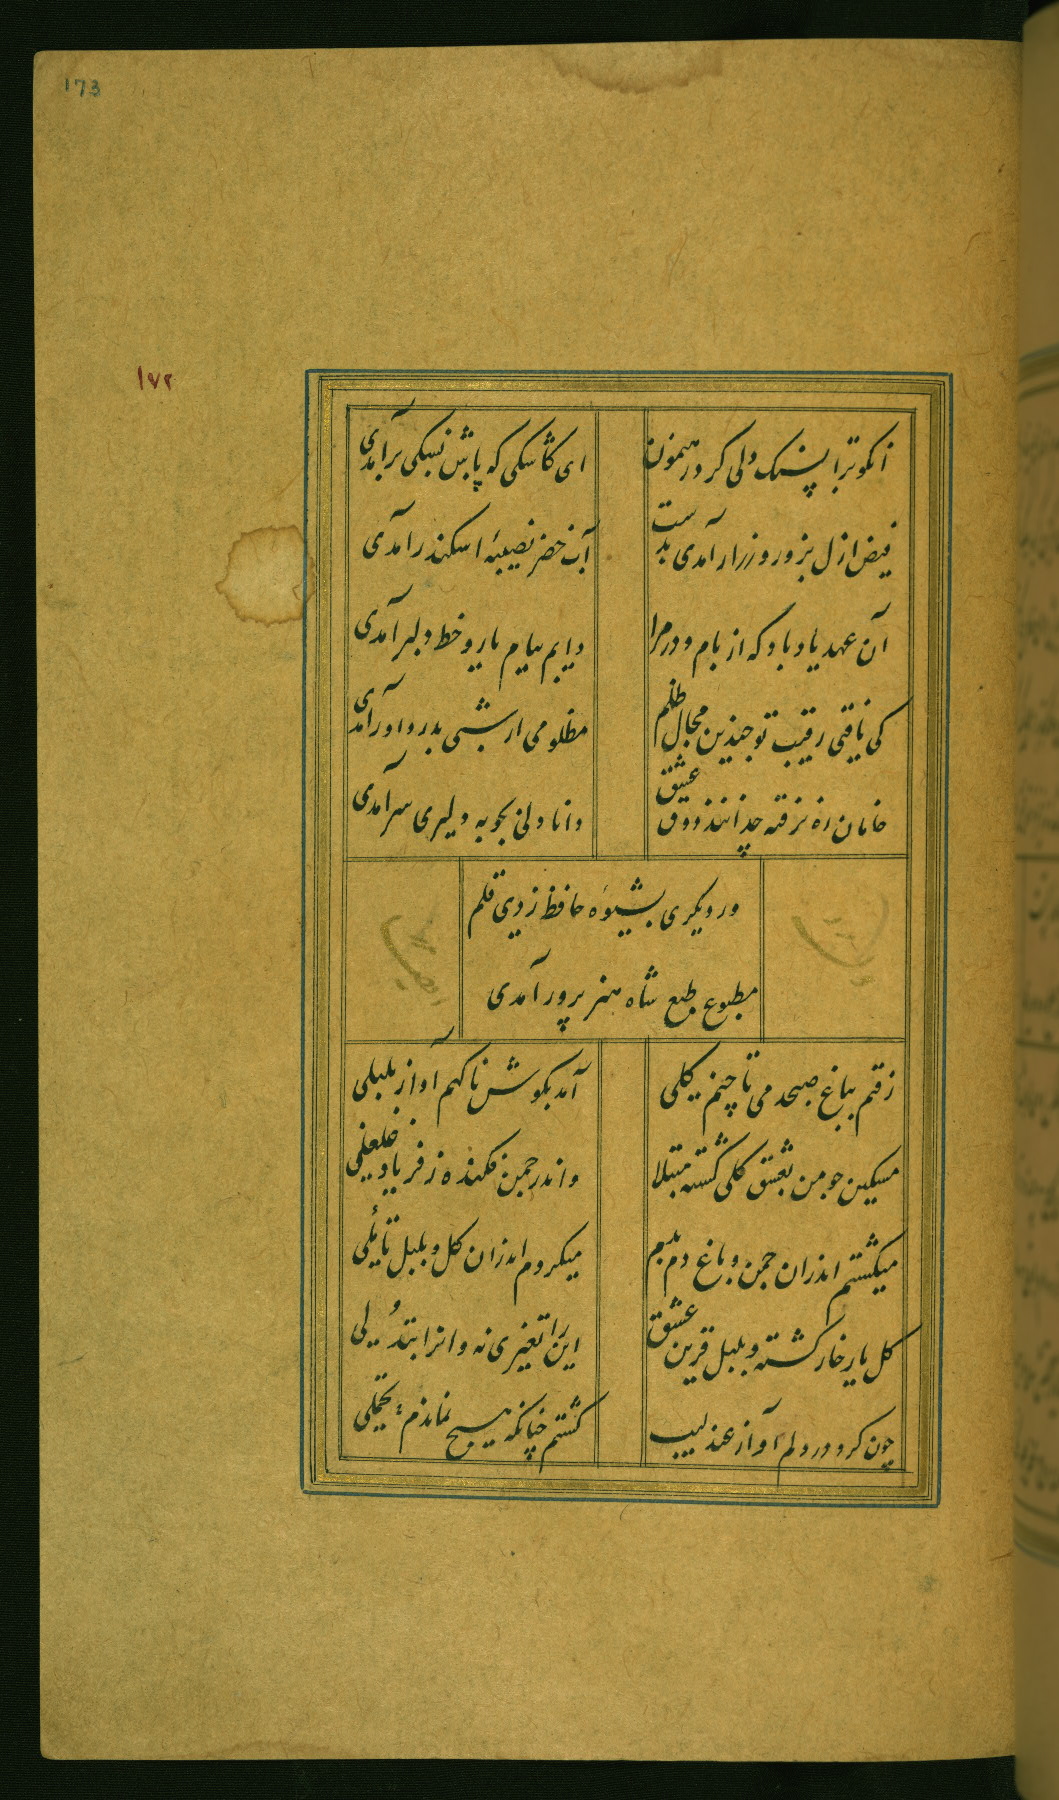 173
۱۷۲
آنکو ترا بسنک دلی کرد رهنمون
ای کاشکی که پاش بسنکی برآمدی
فیض ازل بزور و زر ار آمدی بدست
آب خضر نصیبهٔ اسکندر آمدی
آن عهد یاد باد که از بام و در مرا
دایم پیام یار و خط دلبر آمدی
کی یافتی رقیب تو چندین مجال ظلم
مظلومی ار شبی بدر داور آمدی
خامان ره نرفته چه دانند ذوق عشق
دریا دلی بجوی دلیری سرآمدی
ور دیکری بشیوهٔ حافظ زدی رقم
مطبوع طبع شاه هنر پرور آمدی
رفتم بباغ صبحدمی تا چنم کلی
آمد بکوش ناکهم آواز بلبلی
مسکین چو من بعشق کلی کشته مبتلا
و اندر چمن فکنده ز فریاد غلغلی
میکشتم اندران چمن و باغ دم بدم
میکردم اندران کل و بلبل تأملی
کل یار خار کشته و بلبل قرین عشق
این را تغیری نه و انرا تبدلی
چون کرد در دلم آواز عندلیب
کشتم چنانکه هیچ نماندم تحملی